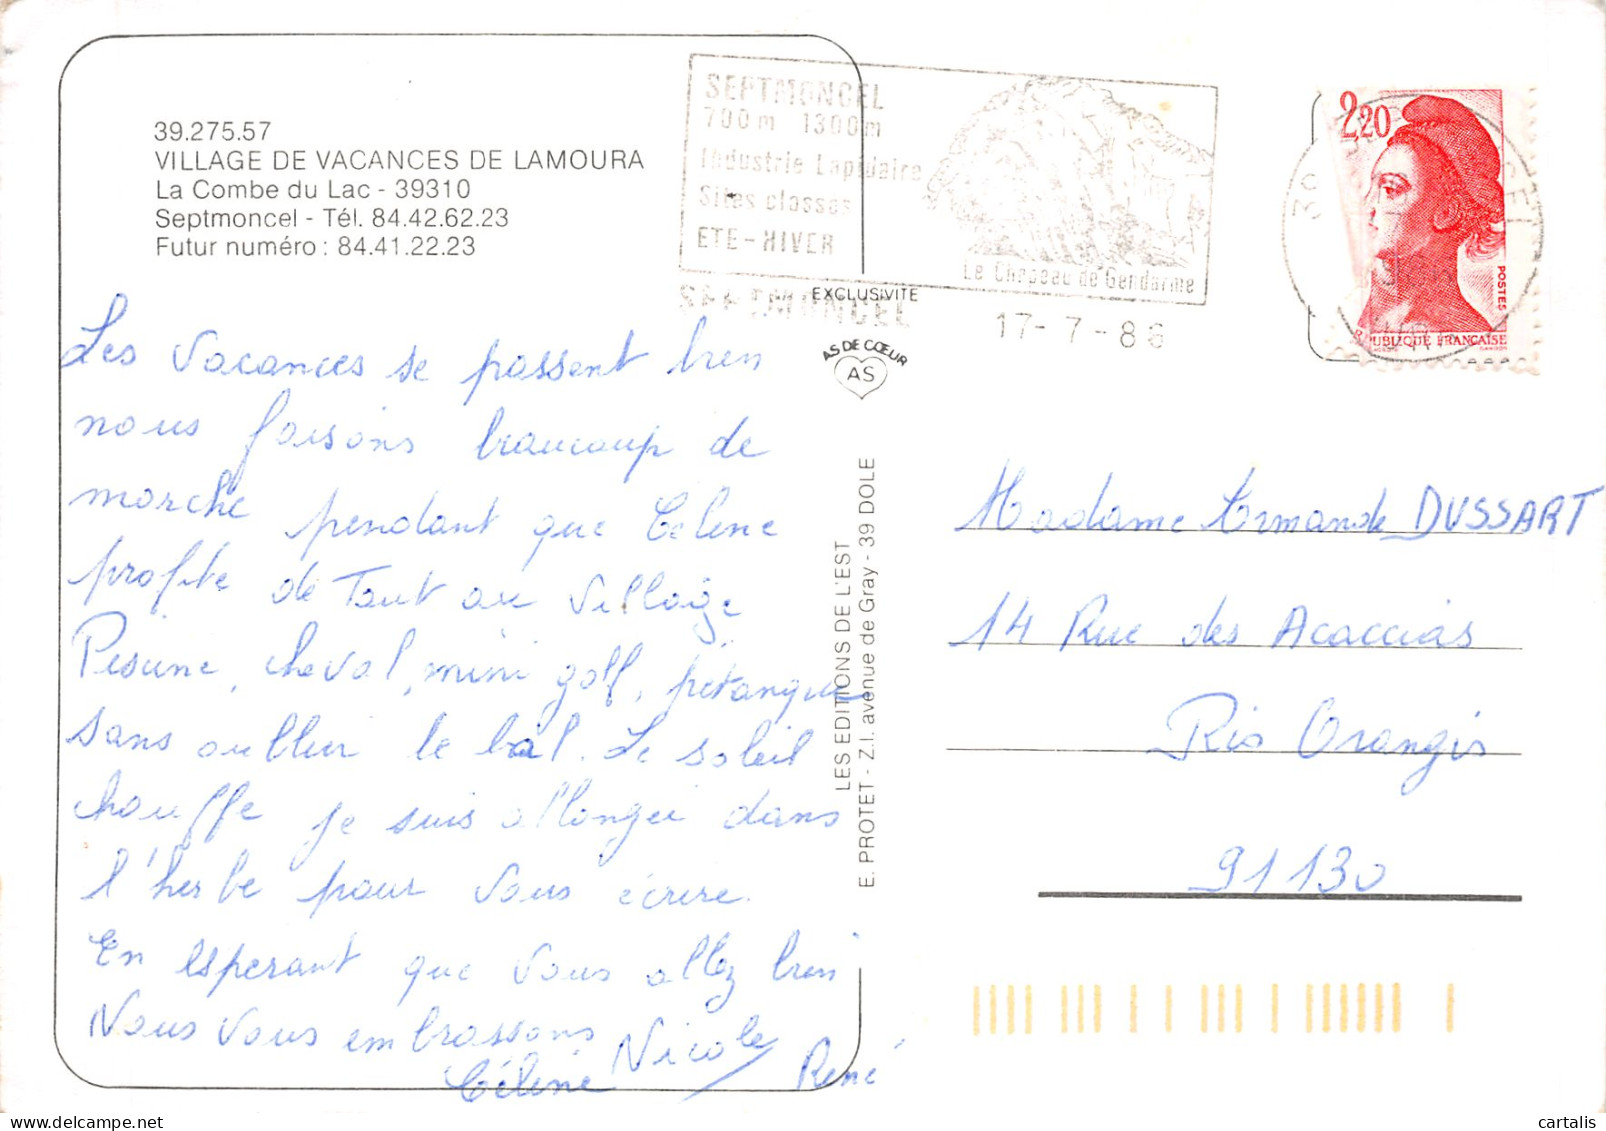 39.275.57
VILLAGE DE VACANCES DE LAMOURA
La Combe du Lac - 39310
Septmoncel - Tél. 84.42.62.23
Futur numéro : 84.41.22.23
SEPTMONCEL
700m 1300m
Industrie Lapidaire
Sites classes
ETE - HIVER
Le Chapeau de Gendarme
SEPTMONCEL
17-7-86
39
2,20
POSTES
REPUBLIQUE FRANÇAISE
EXCLUSIVITE
AS DE CŒUR
AS
Les vacances se passent bien
nous faisons beaucoup de
marche pendant que Célène
profite de Tout au Village
Piscine, cheval, mini golf, pétanque
sans oublier le bal. Le soleil
chauffe je suis allongée dans
l'herbe pour vous écrire.
En esperant que vous allez bien
Nous vous embrassons
Nicole
Célène
René
LES EDITIONS DE L'EST
E. PROTET - Z.I. avenue de Gray - 39 DOLE
Madame Armande DUSSART
14 Rue des Acaccias
Ris Orangis
91130
cartalis
delcampe.net